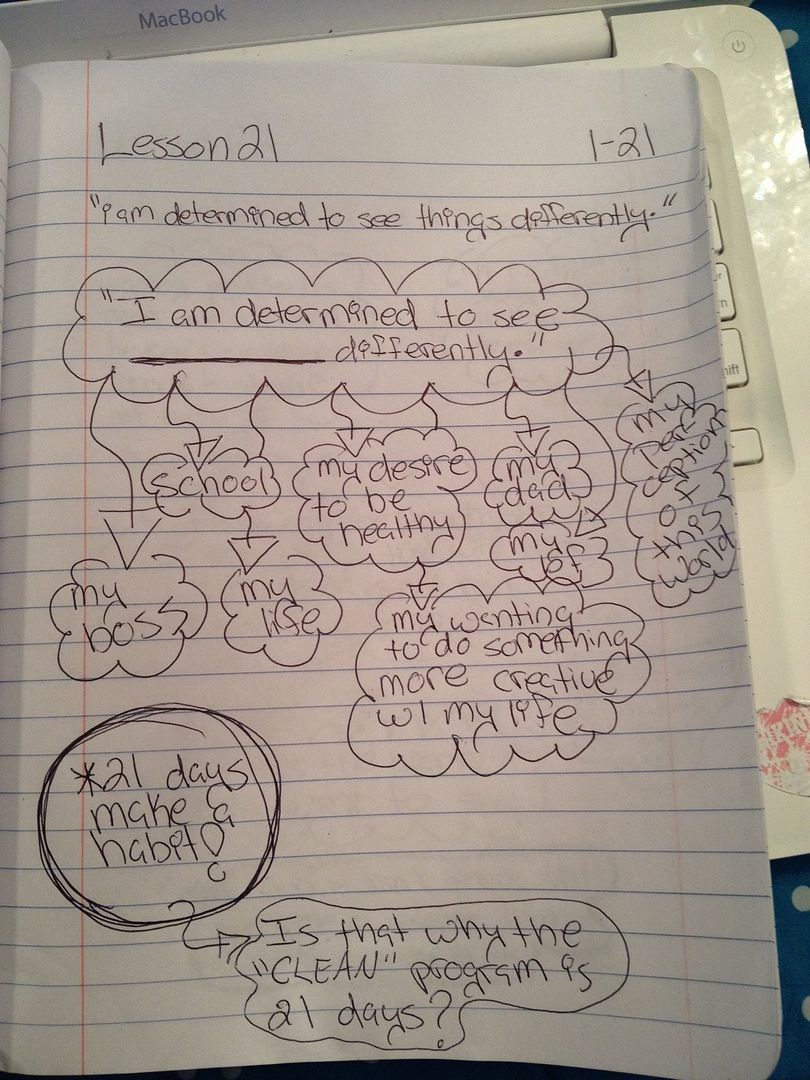 MacBook
Lesson 21
1-21
"i am determined to see things differently."
"I am determined to see
__________ differently."
school
my desire
to be
healthy
my
dad
my
per
ception
of
this
world
my
boss
my
life
my
bf
my wanting
to do something
more creative
w/ my life
*21 days
make a
habit!
Is that why the
"CLEAN" program is
21 days?